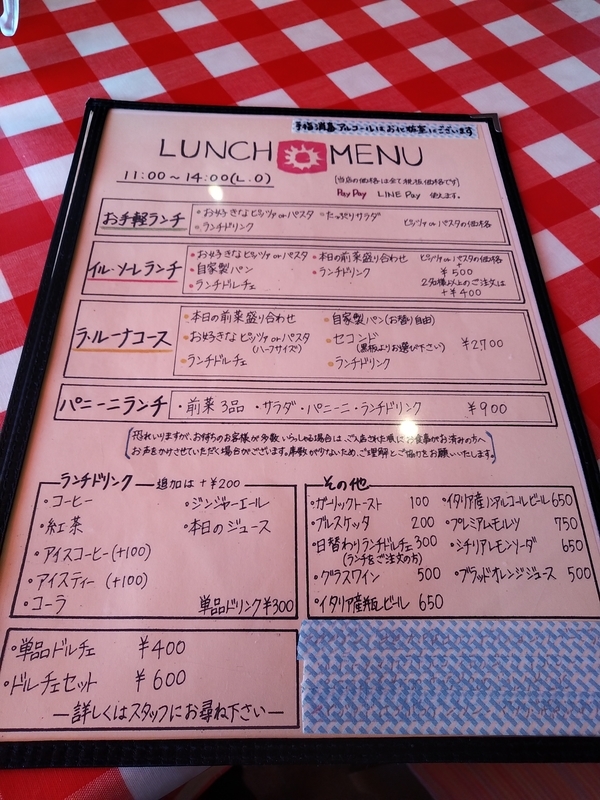 手指消毒アルコールはお化粧室にございます
LUNCH MENU
11:00〜14:00(L.O)
[当店の価格は全て税抜価格です]
PayPay LINE Pay 使えます。
お手軽ランチ
・お好きなピッツァorパスタ ・たっぷりサラダ
・ランチドリンク
ピッツァorパスタの価格
イル・ソーレランチ
・お好きなピッツァorパスタ ・本日の前菜盛り合わせ
・自家製パン ・ランチドリンク
・ランチドルチェ
ピッツァorパスタの価格
+
¥500
2名様以上のご注文は
+¥400
ラ・ルーナコース
・本日の前菜盛り合わせ ・自家製パン(お替り自由)
・お好きなピッツァorパスタ ・セコンド
(ハーフサイズ) (黒板よりお選び下さい)
・ランチドルチェ ・ランチドリンク
¥2700
パニーニランチ
・前菜3品 ・サラダ・パニーニ・ランチドリンク ¥900
恐れいりますが、お待ちのお客様が多数いらっしゃる場合は、ご入店された順にお食事がお済みの方へ
お声をかけさせていただく場合がございます。席数が少ないため、ご理解とご協力をお願いいたします。
ランチドリンク 追加は+¥200
・コーヒー ・ジンジャーエール
・紅茶 ・本日のジュース
・アイスコーヒー(+100)
・アイスティー(+100)
・コーラ 単品ドリンク¥300
その他
・ガーリックトースト 100 ・イタリア産ノンアルコールビール650
・ブルスケッタ 200 ・プレミアムモルツ 750
・日替わりランチドルチェ300 ・シチリアレモンソーダ 650
(ランチをご注文の方)
・グラスワイン 500 ・ブラッドオレンジジュース 500
・イタリア産瓶ビール 650
・単品ドルチェ ¥400
・ドルチェセット ¥600
―詳しくはスタッフにお尋ね下さい―